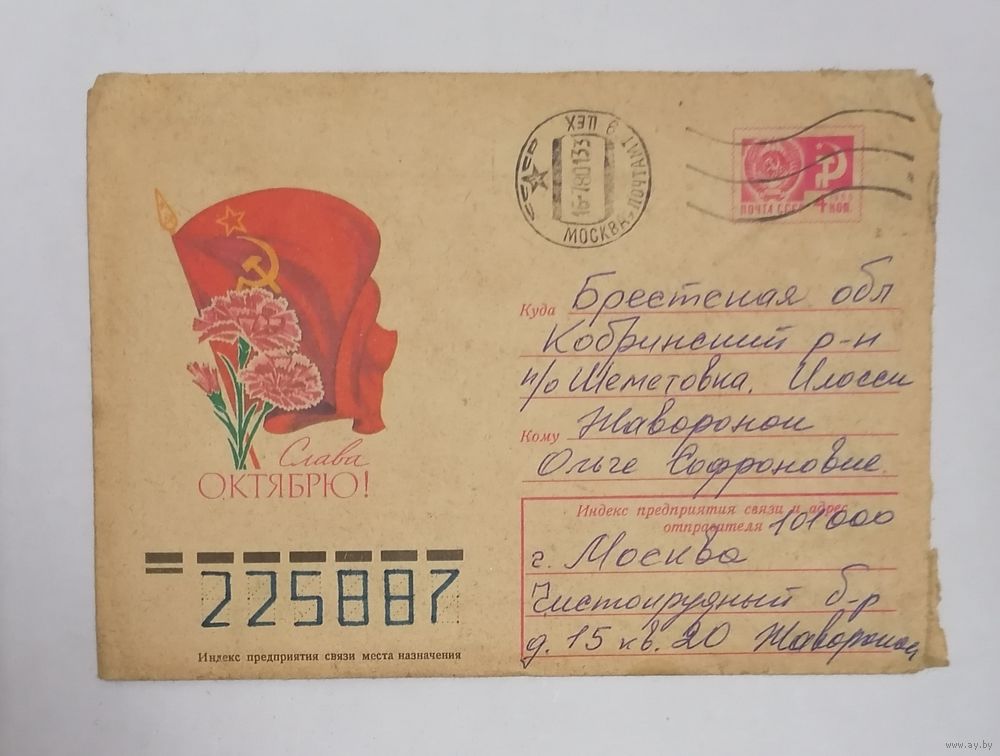 МОСКВА ПОЧТАМТ 9 ЦЕХ
16-780133
ПОЧТА СССР 4 КОП.
Куда Брестская обл
Кобринский р-н
п/о Шеметовка, Илосск
Кому Жаворонок
Ольге Софроновне.
Слава
ОКТЯБРЮ!
Индекс предприятия связи и адрес
отправителя 101000
г. Москва
Чистопрудный б-р
д. 15 кв. 20 Жаворонок
225887
Индекс предприятия связи места назначения
www.ay.by